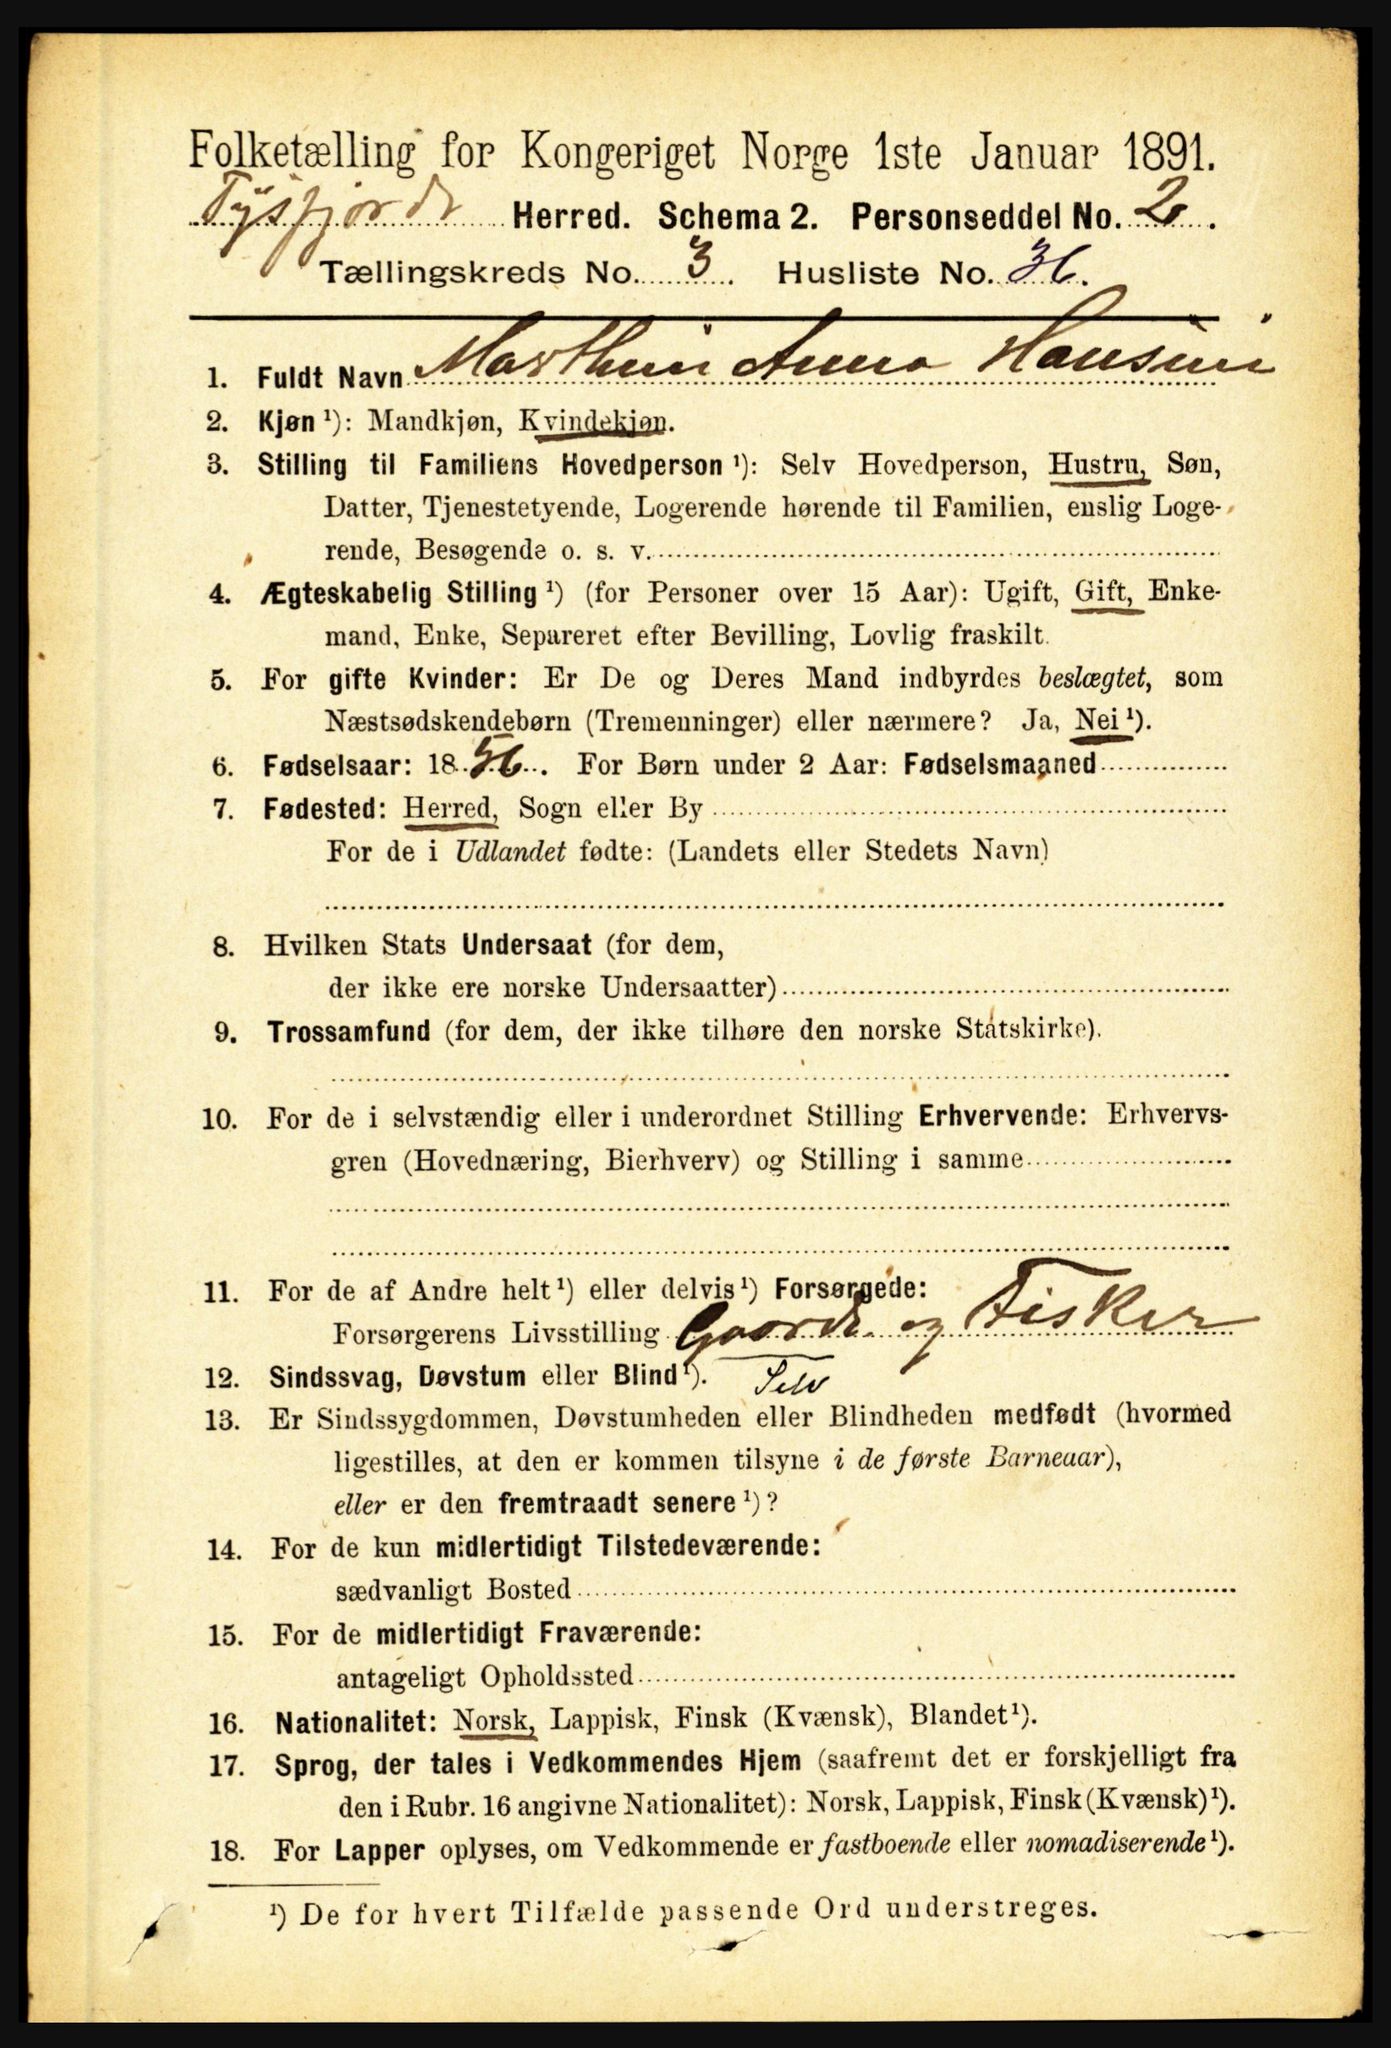 Folketælling for Kongeriget Norge 1ste Januar 1891.
Tysfjord Herred. Schema 2. Personseddel No. 2.
Tællingskreds No. 3. Husliste No. 36.
1. Fuldt Navn Marthin Anna Hansini
2. Kjøn ¹): Mandkjøn, Kvindekjøn.
3. Stilling til Familiens Hovedperson ¹): Selv Hovedperson, Hustru, Søn,
Datter, Tjenestetyende, Logerende hørende til Familien, enslig Loge-
rende, Besøgende o. s. v.
4. Ægteskabelig Stilling ¹) (for Personer over 15 Aar): Ugift, Gift, Enke-
mand, Enke, Separeret efter Bevilling, Lovlig fraskilt.
5. For gifte Kvinder: Er De og Deres Mand indbyrdes beslægtet, som
Næstsødskendebørn (Tremenninger) eller nærmere? Ja, Nei ¹).
6. Fødselsaar: 1856. For Børn under 2 Aar: Fødselsmaaned
7. Fødested: Herred, Sogn eller By
For de i Udlandet fødte: (Landets eller Stedets Navn)
8. Hvilken Stats Undersaat (for dem,
der ikke ere norske Undersaatter)
9. Trossamfund (for dem, der ikke tilhøre den norske Statskirke).
10. For de i selvstændig eller i underordnet Stilling Erhvervende: Erhvervs-
gren (Hovednæring, Bierhverv) og Stilling i samme
11. For de af Andre helt ¹) eller delvis ¹) Forsørgede:
Forsørgerens Livsstilling Gaardb. og Fisker
12. Sindssvag, Døvstum eller Blind ¹). Selv
13. Er Sindssygdommen, Døvstumheden eller Blindheden medfødt (hvormed
ligestilles, at den er kommen tilsyne i de første Barneaar),
eller er den fremtraadt senere ¹)?
14. For de kun midlertidigt Tilstedeværende:
sædvanligt Bosted
15. For de midlertidigt Fraværende:
antageligt Opholdssted
16. Nationalitet: Norsk, Lappisk, Finsk (Kvænsk), Blandet ¹).
17. Sprog, der tales i Vedkommendes Hjem (saafremt det er forskjelligt fra
den i Rubr. 16 angivne Nationalitet): Norsk, Lappisk, Finsk (Kvænsk) ¹).
18. For Lapper oplyses, om Vedkommende er fastboende eller nomadiserende ¹).
¹) De for hvert Tilfælde passende Ord understreges.